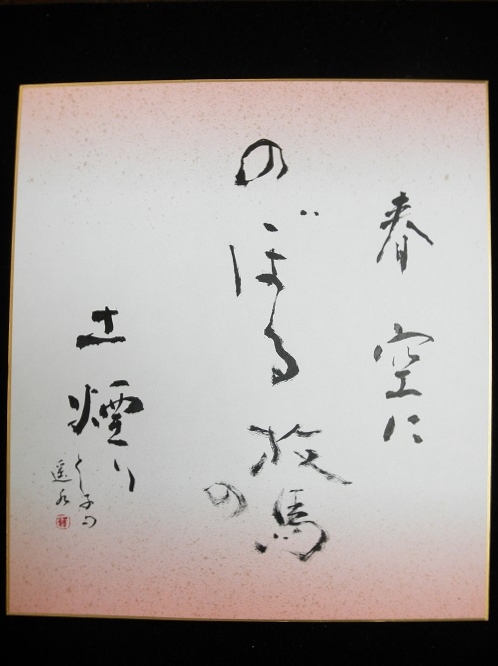 春空に
のぼる放馬の
土煙り
とし子句
遥水